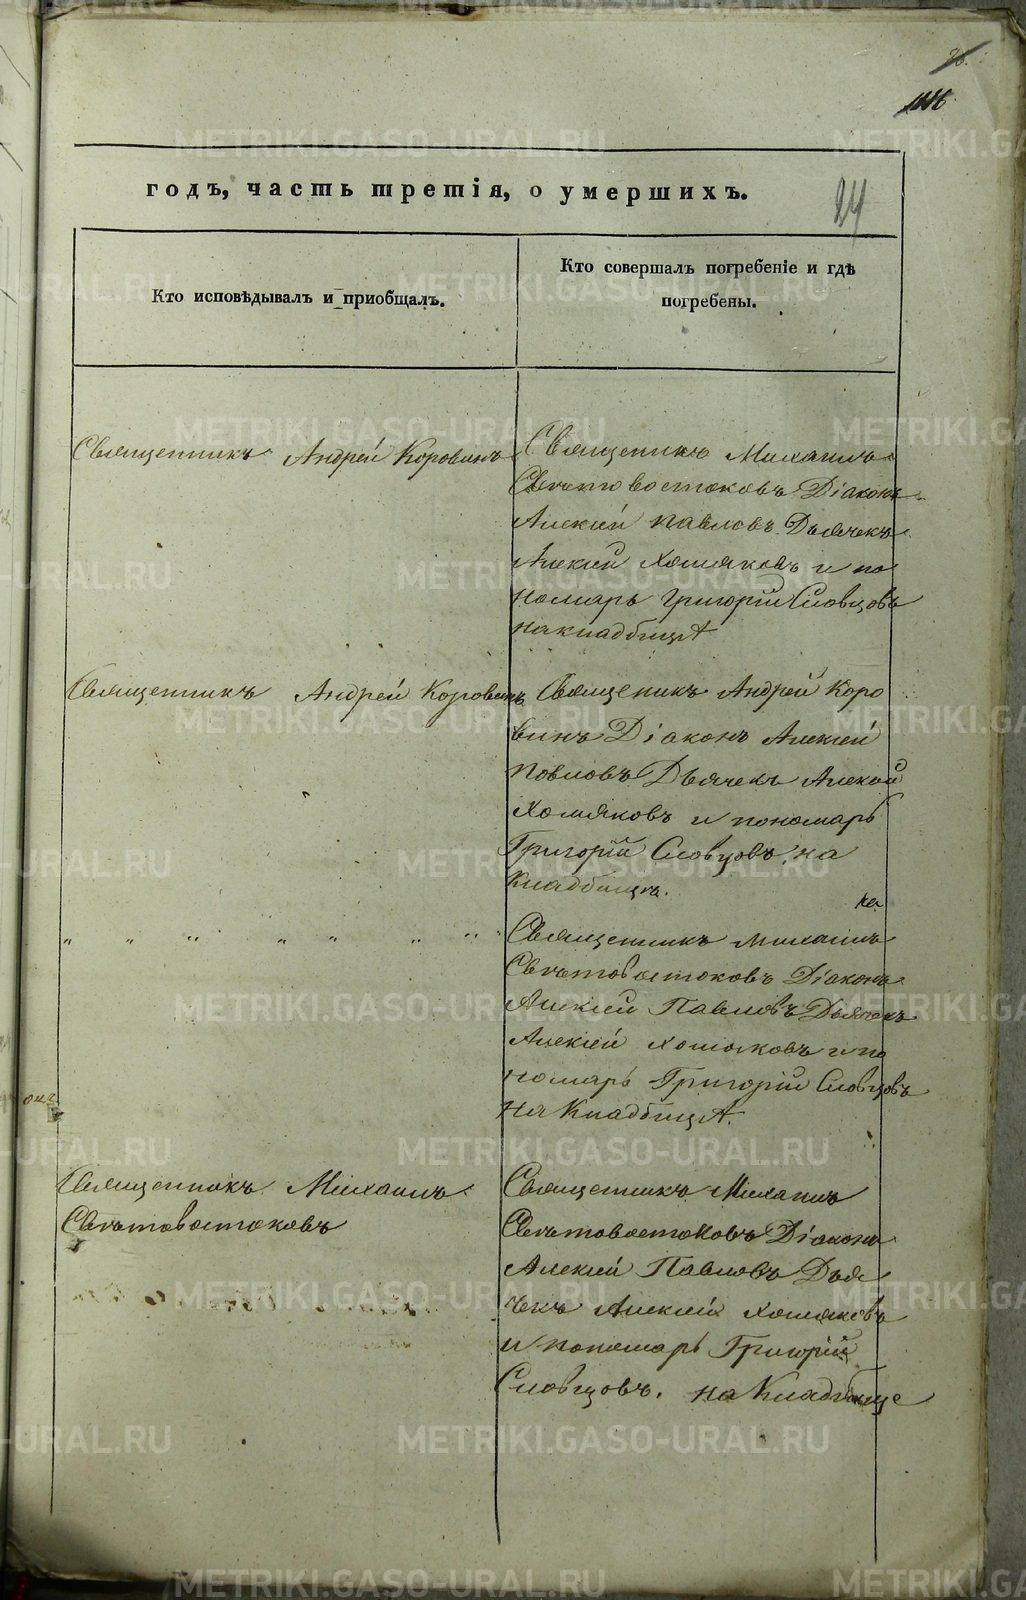 26.
24
годъ, часть третія, о умершихъ.
Кто исповѣдывалъ и пріобщалъ.
Кто совершалъ погребеніе и гдѣ
погребены.
Священникъ Андрей Коровинъ
Священикъ Михаилъ
Свѣтовостоковъ Діаконъ
Алексій Павловъ Дьячекъ
Алексій Хомяковъ и по
номарь Григорій Словцовъ
на кладбищѣ
Священникъ Андрей Коровинъ
Священикъ Андрей Коро
винъ Діаконъ Алексій
Повловъ Дьячекъ Алексій
Хомяковъ и пономарь
Григорій Словцовъ, на
кладбищѣ.
" " " " " " "
Священникъ Михаилъ
Свѣтовостоковъ Діаконъ
Алексій Павловъ Дьячекъ
Алексій Хомяковъ и по
номарь Григорій Словцовъ
на Кладбищѣ.
Священникъ Михаилъ
Свѣтовостоковъ
Священникъ Михаилъ
Свѣтовостоковъ Діаконъ
Алексій Павловъ Дья
чекъ Алексій Хомяковъ
и пономарь Григорій
Словцовъ. на Кладбище
METRIKI.GASO-URAL.RU